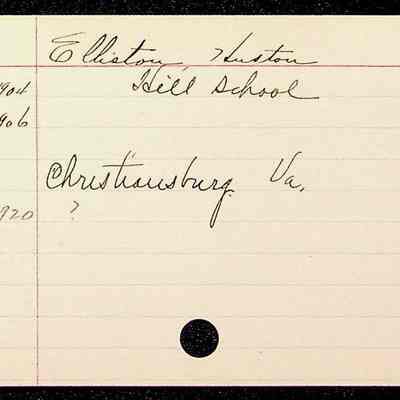 Elliston, Huston
904 Hill School
906
Christiansburg, Va.
920 ?